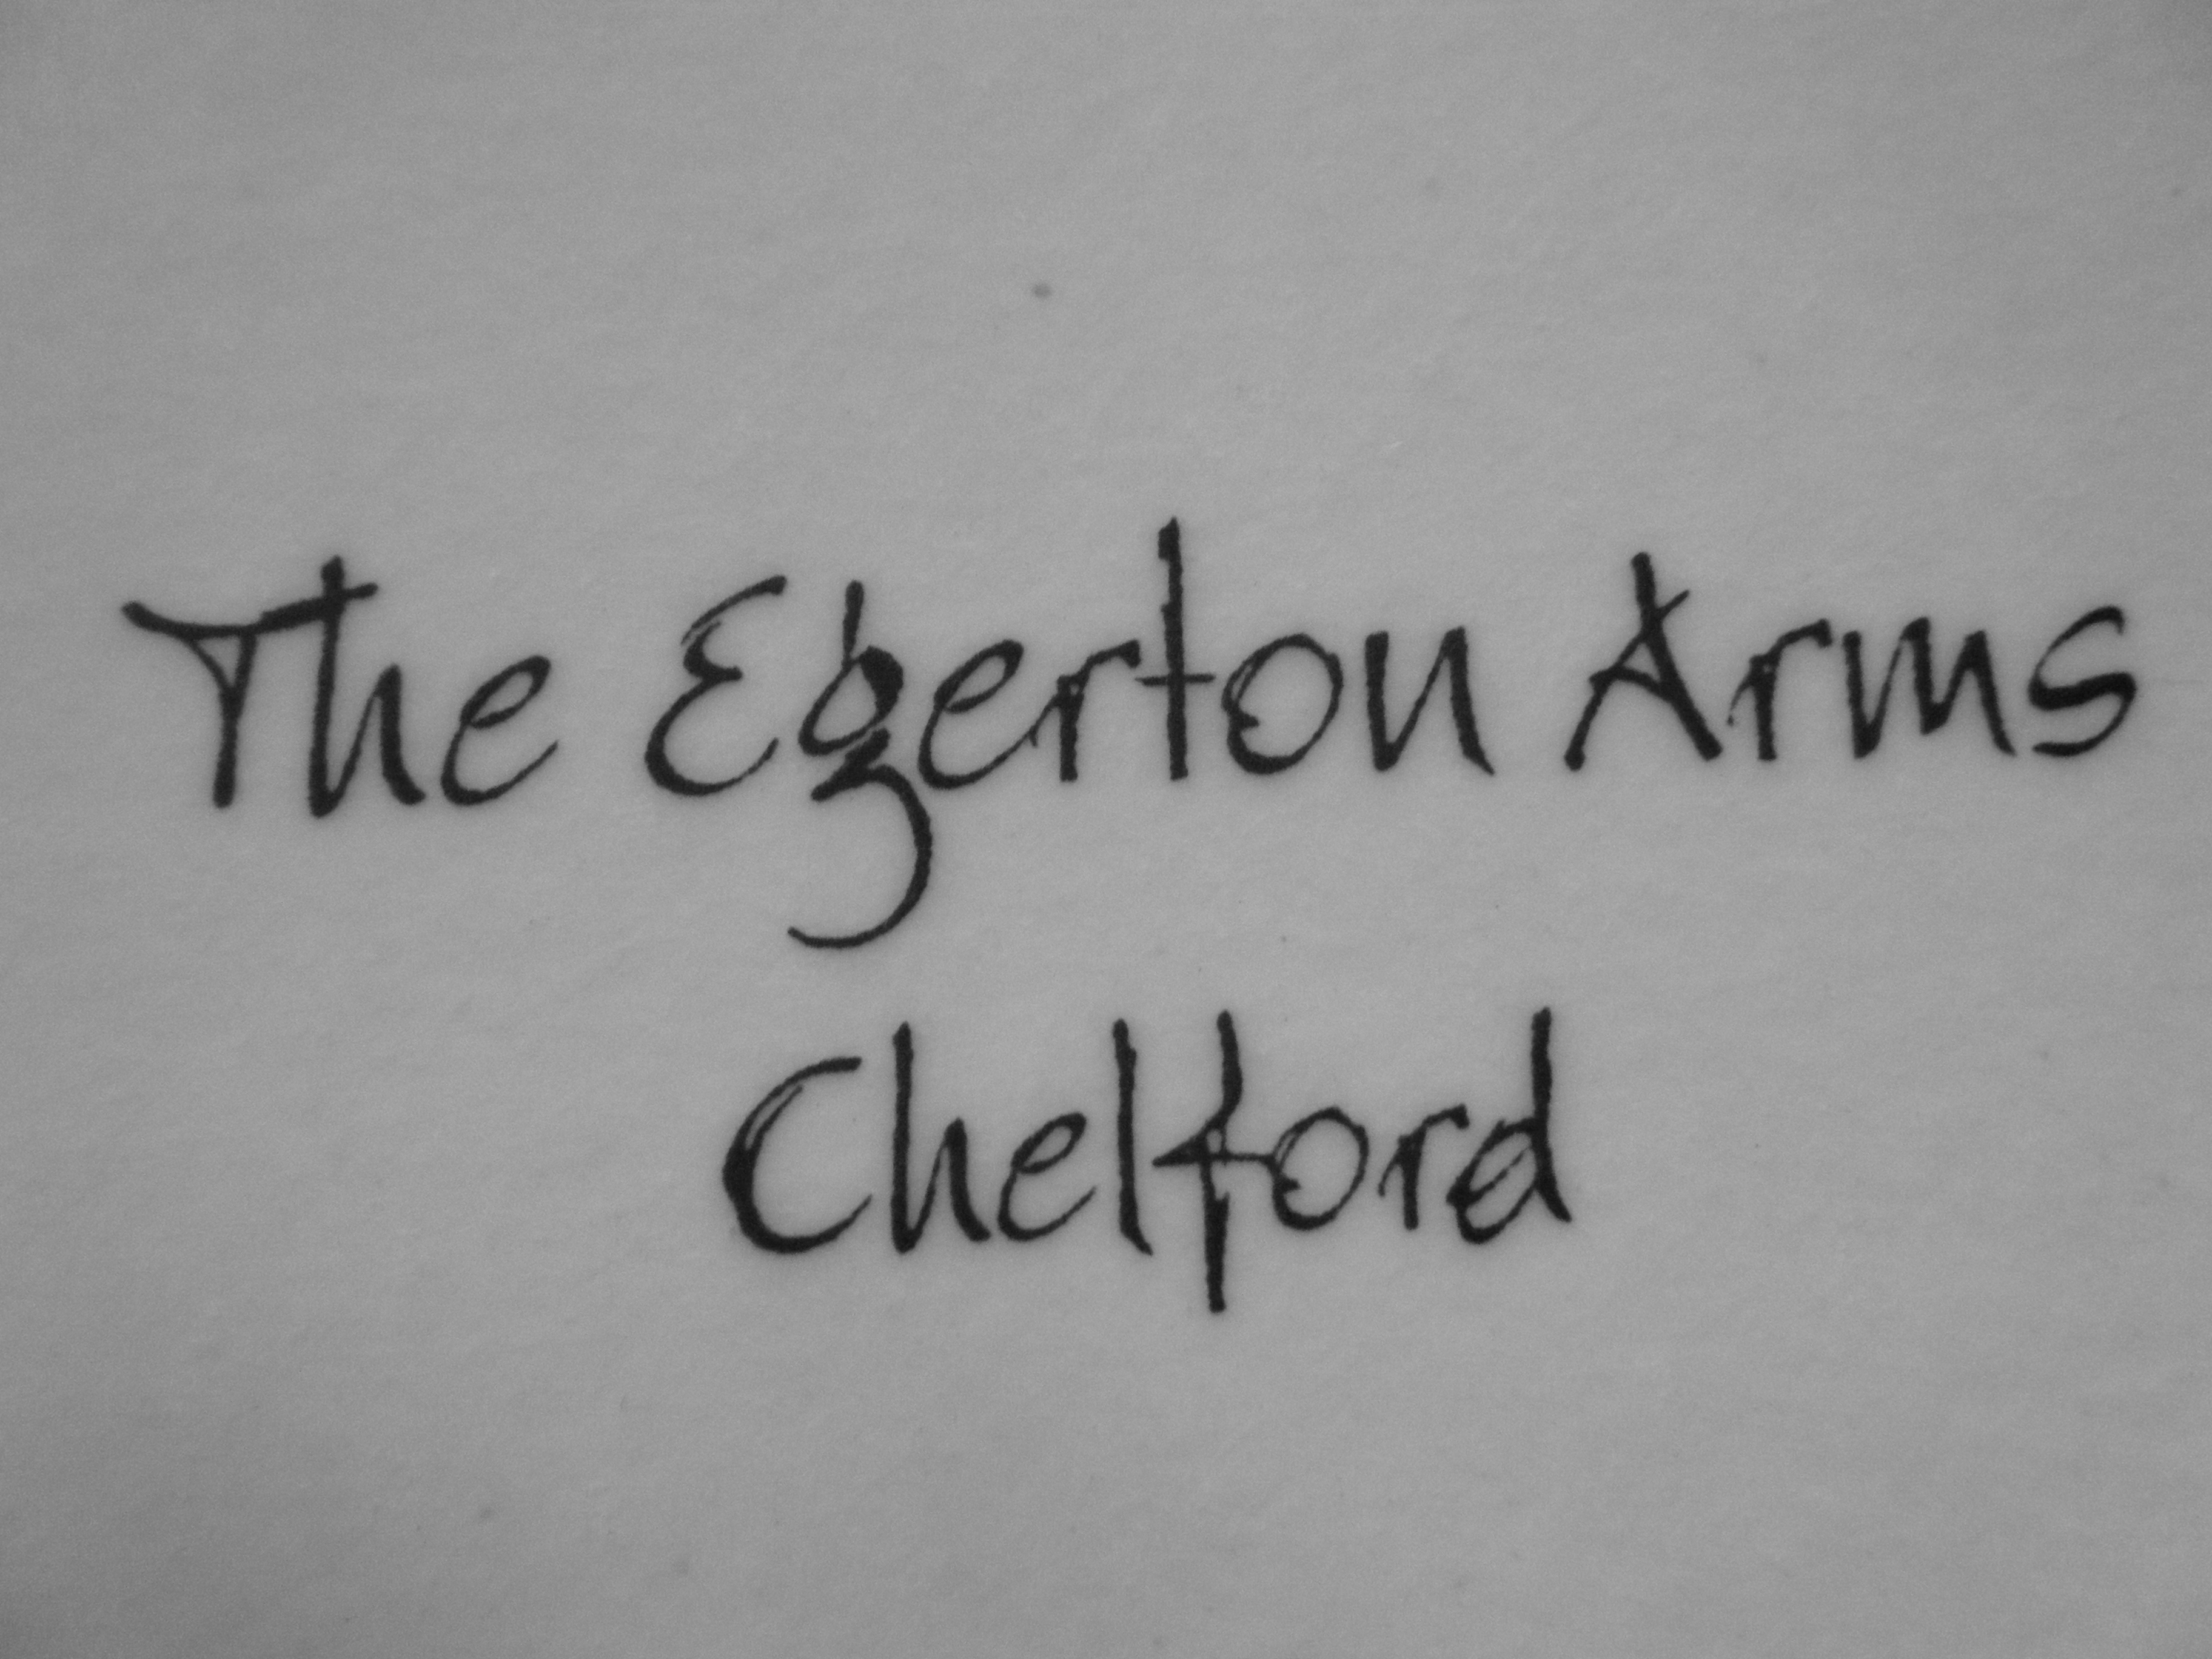 The Egerton Arms
Chelford